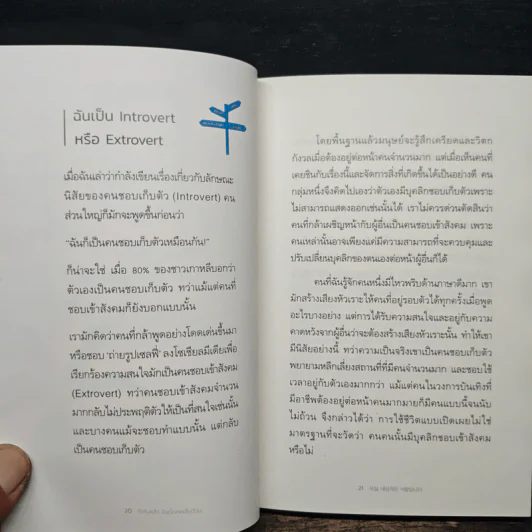 ฉันเป็น Introvert
หรือ Extrovert
เมื่อฉันเล่าว่ากำลังเขียนเรื่องเกี่ยวกับลักษณะ
นิสัยของคนชอบเก็บตัว (Introvert) คน
ส่วนใหญ่ก็มักจะพูดขึ้นก่อนว่า
“ฉันก็เป็นคนชอบเก็บตัวเหมือนกัน!”
ก็น่าจะใช่ เมื่อ 80% ของชาวเกาหลีบอกว่า
ตัวเองเป็นคนชอบเก็บตัว ทว่าแม้แต่คนที่
ชอบเข้าสังคมก็ยังบอกแบบนั้น
เรามักคิดว่าคนที่กล้าพูดอย่างโดดเด่นขึ้นมา
หรือชอบ ‘ถ่ายรูปเซลฟี่’ ลงโซเชียลมีเดียเพื่อ
เรียกร้องความสนใจมักเป็นคนชอบเข้าสังคม
(Extrovert) ทว่าคนชอบเข้าสังคมจำนวน
มากกลับไม่ประพฤติตัวให้เป็นที่สนใจเช่นนั้น
และบางคนแม้จะชอบทำแบบนั้น แต่กลับ
เป็นคนชอบเก็บตัว
โดยพื้นฐานแล้วมนุษย์จะรู้สึกเครียดและวิตก
กังวลเมื่อต้องอยู่ต่อหน้าคนจำนวนมาก แต่เมื่อเห็นคนที่
เคยชินกับเรื่องนี้และจัดการสิ่งที่เกิดขึ้นได้เป็นอย่างดี คน
กลุ่มหนึ่งจึงคิดไปเองว่าตัวเองมีบุคลิกชอบเก็บตัวเพราะ
ไม่สามารถแสดงออกเช่นนั้นได้ เราไม่ควรด่วนตัดสินว่า
คนที่กล้าเผชิญหน้ากับผู้อื่นเป็นคนชอบเข้าสังคม เพราะ
คนเหล่านั้นอาจเพียงแค่มีความสามารถที่จะควบคุมและ
ปรับเปลี่ยนบุคลิกของตนเองต่อหน้าผู้อื่นก็ได้
คนที่ฉันรู้จักคนหนึ่งมีไหวพริบด้านภาษาดีมาก เขา
มักสร้างเสียงหัวเราะให้คนที่อยู่รอบตัวได้ทุกครั้งเมื่อพูด
อะไรบางอย่าง แต่การได้รับความสนใจและอยู่กับความ
คาดหวังจากผู้อื่นว่าจะต้องสร้างเสียงหัวเราะนั้น ทำให้เขา
มีนิสัยอย่างนี้ ทว่าความเป็นจริงเขาเป็นคนชอบเก็บตัว
พยายามหลีกเลี่ยงสถานที่ที่มีคนจำนวนมาก และชอบใช้
เวลาอยู่กับตัวเองมากกว่า แม้แต่คนในวงการบันเทิงที่
มีอาชีพต้องอยู่ต่อหน้าคนมากมายก็มีคนแบบนี้จนนับ
ไม่ถ้วน จึงกล่าวได้ว่า การใช้ชีวิตแบบเปิดเผยไม่ใช่
มาตรฐานที่จะวัดว่า คนคนนั้นมีบุคลิกชอบเข้าสังคม
หรือไม่